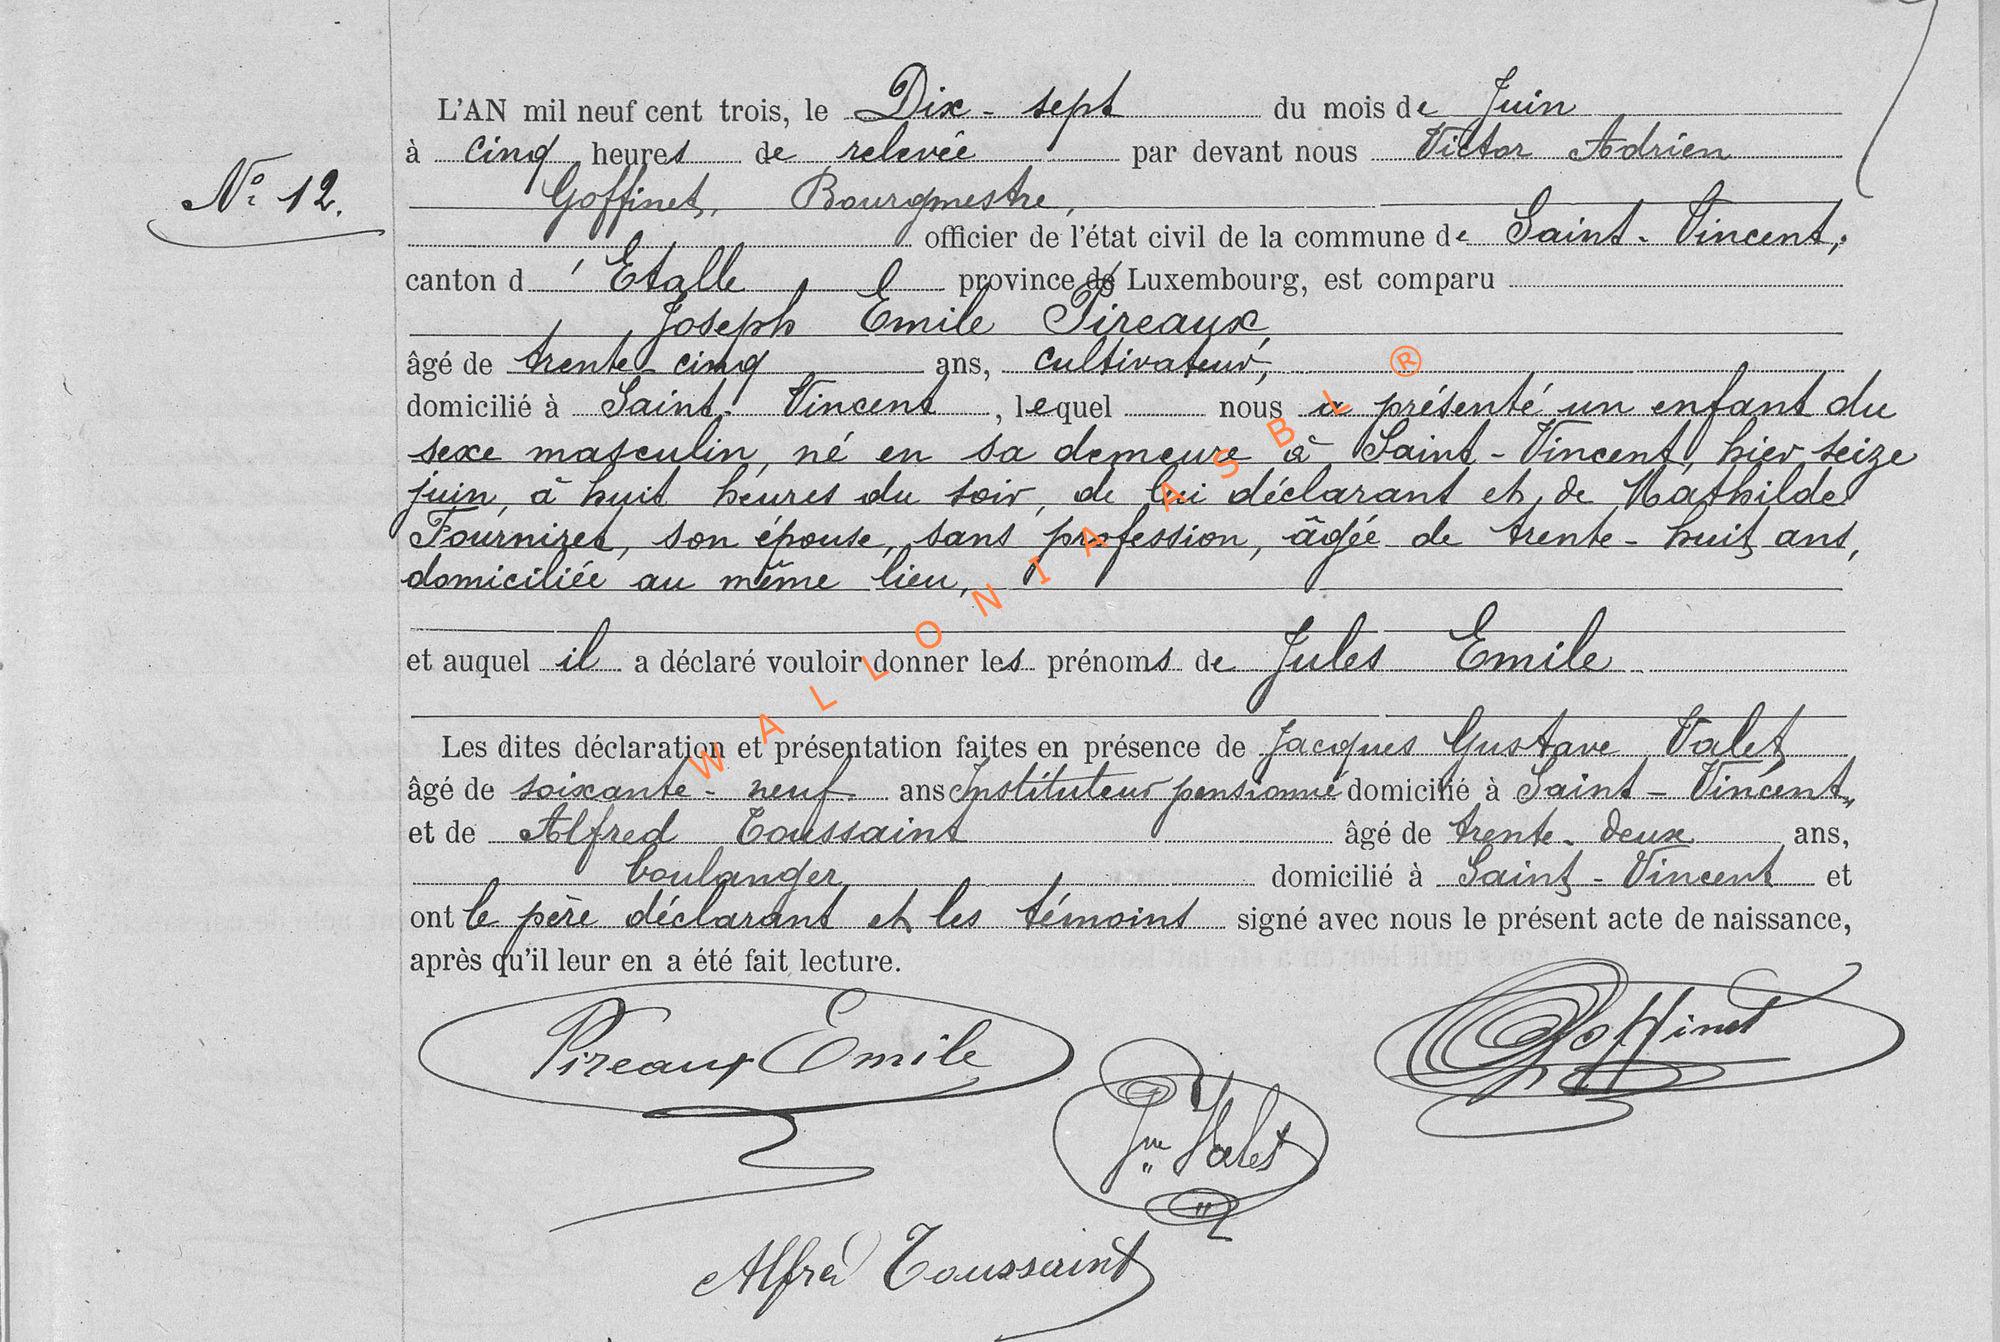 L'AN mil neuf cent trois, le Dix-sept du mois de Juin
à cinq heures de relevée par devant nous Victor Adrien
N° 12.
Goffinet, Bourgmestre,
officier de l'état civil de la commune de Saint-Vincent,
canton d'Etalle province de Luxembourg, est comparu
Joseph Emile Pireaux,
âgé de trente-cinq ans, cultivateur,
domicilié à Saint-Vincent, lequel nous a présenté un enfant du
sexe masculin, né en sa demeure à Saint-Vincent, hier seize
juin, à huit heures du soir, de lui déclarant et de Mathilde
Fourniret, son épouse, sans profession, âgée de trente-huit ans,
domiciliée au même lieu,
et auquel il a déclaré vouloir donner les prénoms de Jules Emile
Les dites déclaration et présentation faites en présence de Jacques Gustave Valet
âgé de soixante-neuf ans Instituteur pensionné domicilié à Saint-Vincent,
et de Alfred Toussaint âgé de trente-deux ans,
boulanger domicilié à Saint-Vincent et
ont le père déclarant et les témoins signé avec nous le présent acte de naissance,
après qu'il leur en a été fait lecture.
Pireaux Emile
Goffinet
Valet
Alfred Toussaint
WALLONIA ASBL ®